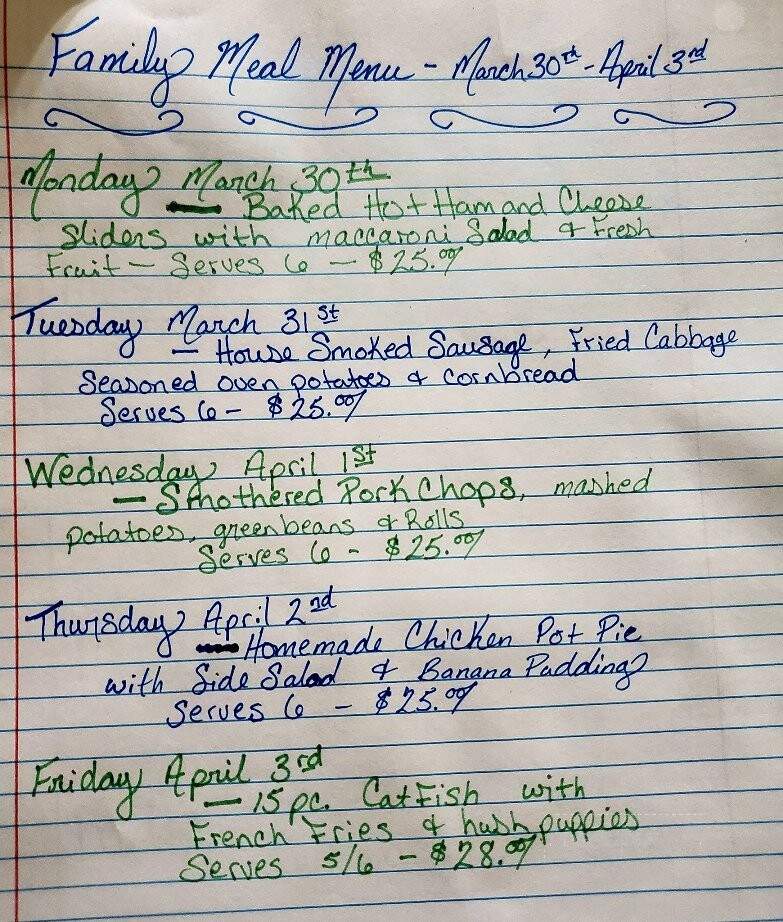 Family Meal Menu - March 30th - April 3rd
Monday March 30th
— Baked Hot Ham and Cheese
Sliders with maccaroni Salad & Fresh
Fruit — Serves 6 — $25.00
Tuesday March 31st
— House Smoked Sausage, Fried Cabbage
Seasoned oven potatoes & cornbread
Serves 6 - $25.00
Wednesday April 1st
— Smothered Pork Chops, mashed
potatoes, greenbeans & Rolls
Serves 6 - $25.00
Thursday April 2nd
— Homemade Chicken Pot Pie
with Side Salad & Banana Pudding
Serves 6 - $25.00
Friday April 3rd
— 15 pc. CatFish with
French Fries & hushpuppies
Serves 5/6 - $28.00